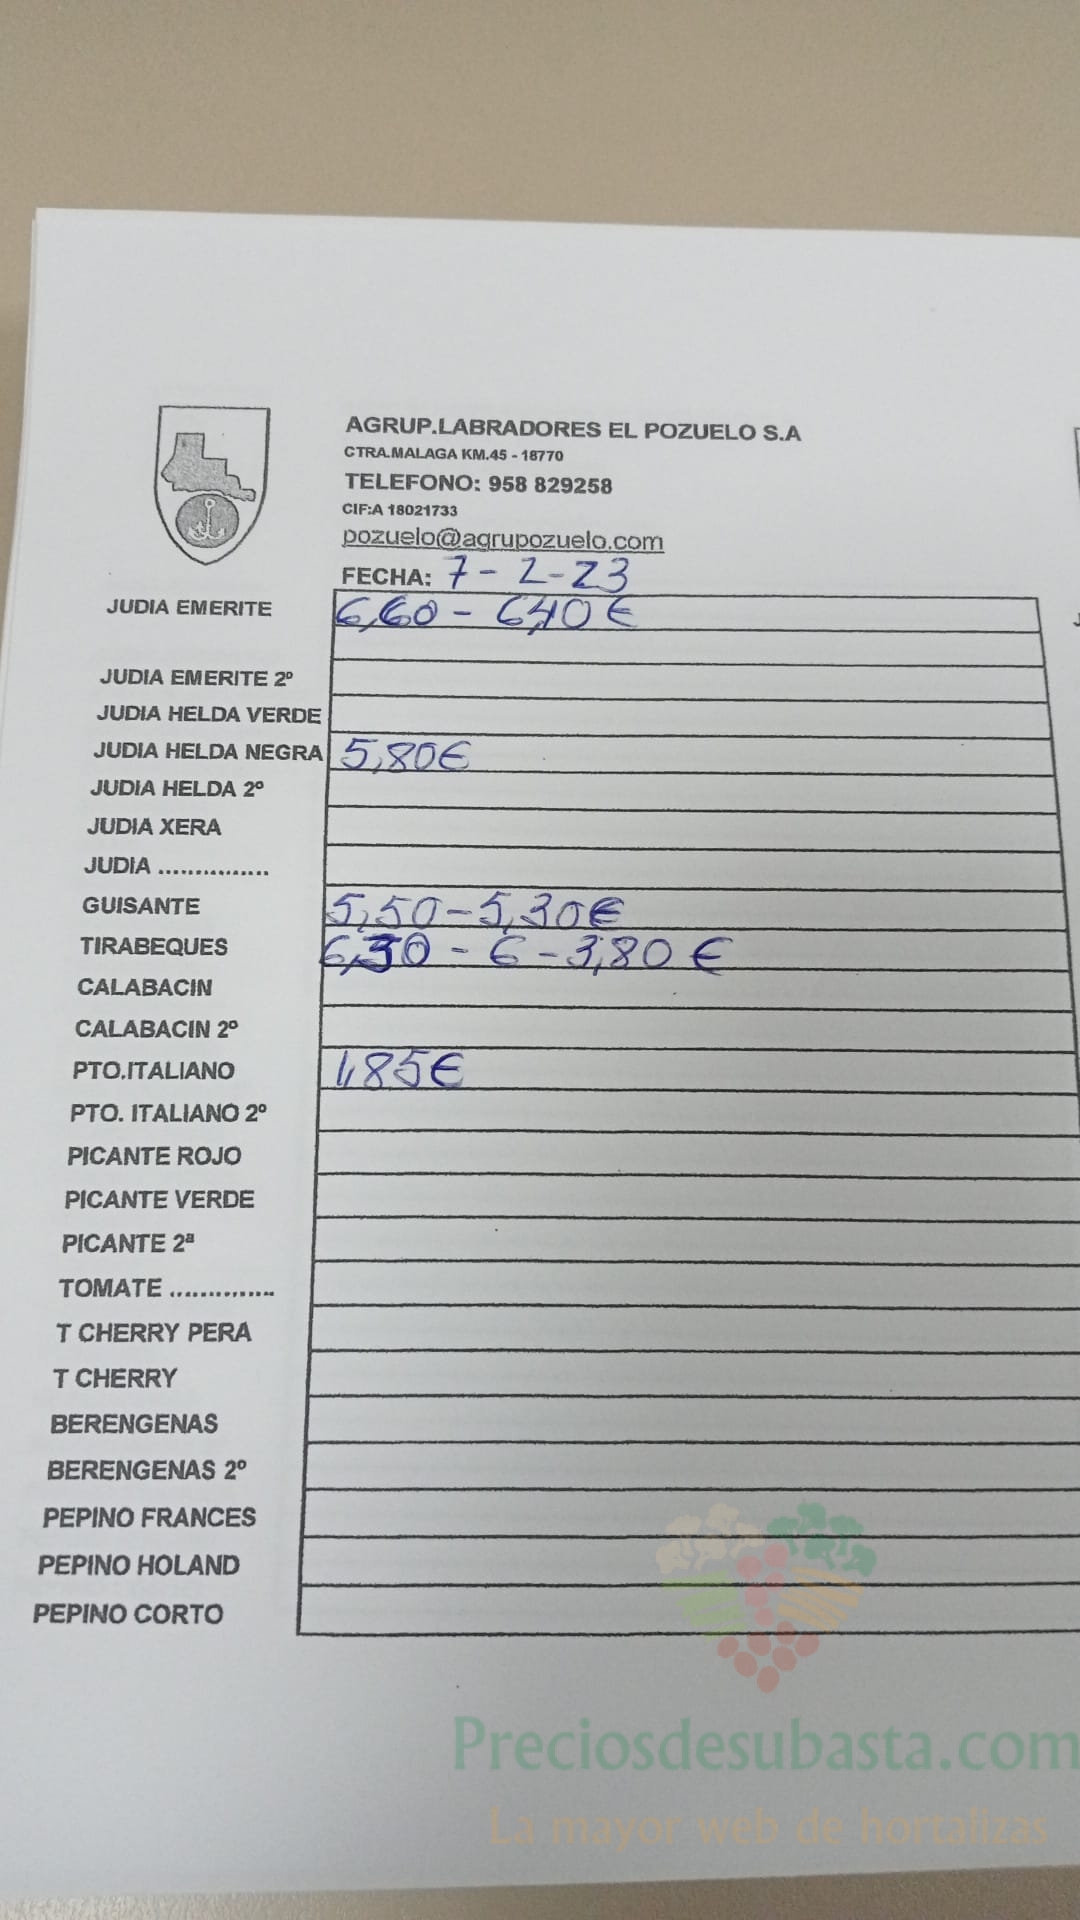 AGRUP.LABRADORES EL POZUELO S.A
CTRA.MALAGA KM.45 - 18770
TELEFONO: 958 829258
CIF:A 18021733
pozuelo@agrupozuelo.com
FECHA: 7-2-23
JUDIA EMERITE 6,60 - 6,10 €
JUDIA EMERITE 2º
JUDIA HELDA VERDE
JUDIA HELDA NEGRA 5,80€
JUDIA HELDA 2º
JUDIA XERA
JUDIA ...............
GUISANTE 5,50-5,30€
TIRABEQUES 6,30 - 6 - 3,80 €
CALABACIN
CALABACIN 2º
PTO.ITALIANO 1,85€
PTO. ITALIANO 2º
PICANTE ROJO
PICANTE VERDE
PICANTE 2ª
TOMATE ..............
T CHERRY PERA
T CHERRY
BERENGENAS
BERENGENAS 2º
PEPINO FRANCES
PEPINO HOLAND
PEPINO CORTO
Preciosdesubasta.com
La mayor web de hortalizas